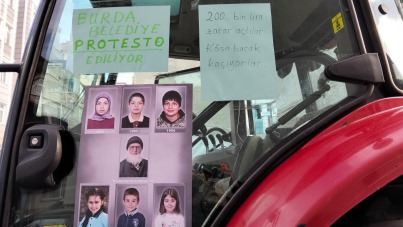 BURDA
BELEDİYE
PROTESTO
EDİLİYOR
200. bin lira
zarar açtılar
Köşe bucak
kaçıyorlar